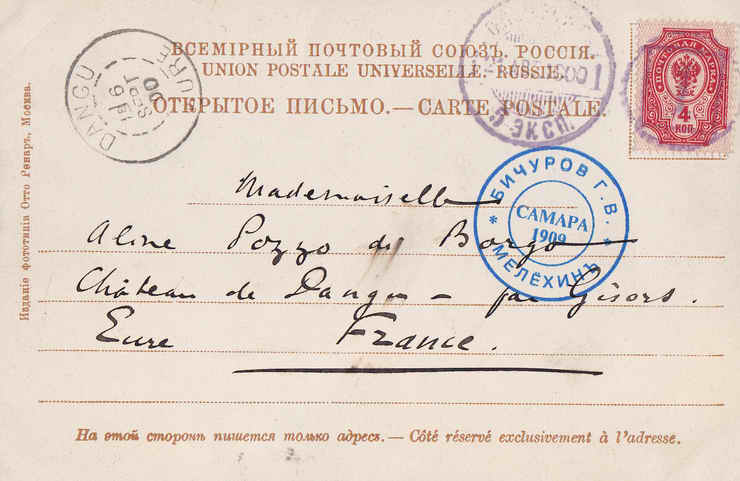 ВСЕМІРНЫЙ ПОЧТОВЫЙ СОЮЗЪ. РОССІЯ.
UNION POSTALE UNIVERSELLE. RUSSIE.
ОТКРЫТОЕ ПИСЬМО. — CARTE POSTALE.
DANGU EURE
9 SEPT 00
1
ЭКСП.
ПОЧТОВАЯ МАРКА
4
КОП.
Mademoiselle
Aline Pozzo di Borgo
Château de Dangu — par Gisors.
Eure France.
БИЧУРОВ Г.В.
САМАРА
1909
* МЕЛЁХИНЪ *
Изданіе фототипіи Отто Ренаръ, Москва.
На этой сторонѣ пишется только адресъ. — Côté réservé exclusivement à l'adresse.